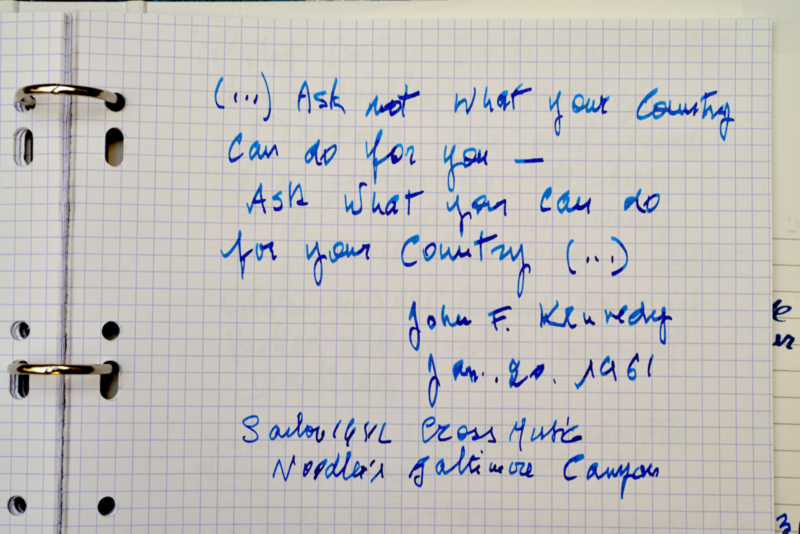 (...) Ask not what your Country
Can do for you —
Ask what you can do
for your Country (...)
John F. Kennedy
Jan. 20. 1961
Sailor Cross Music
Noodler's Baltimore Canyon